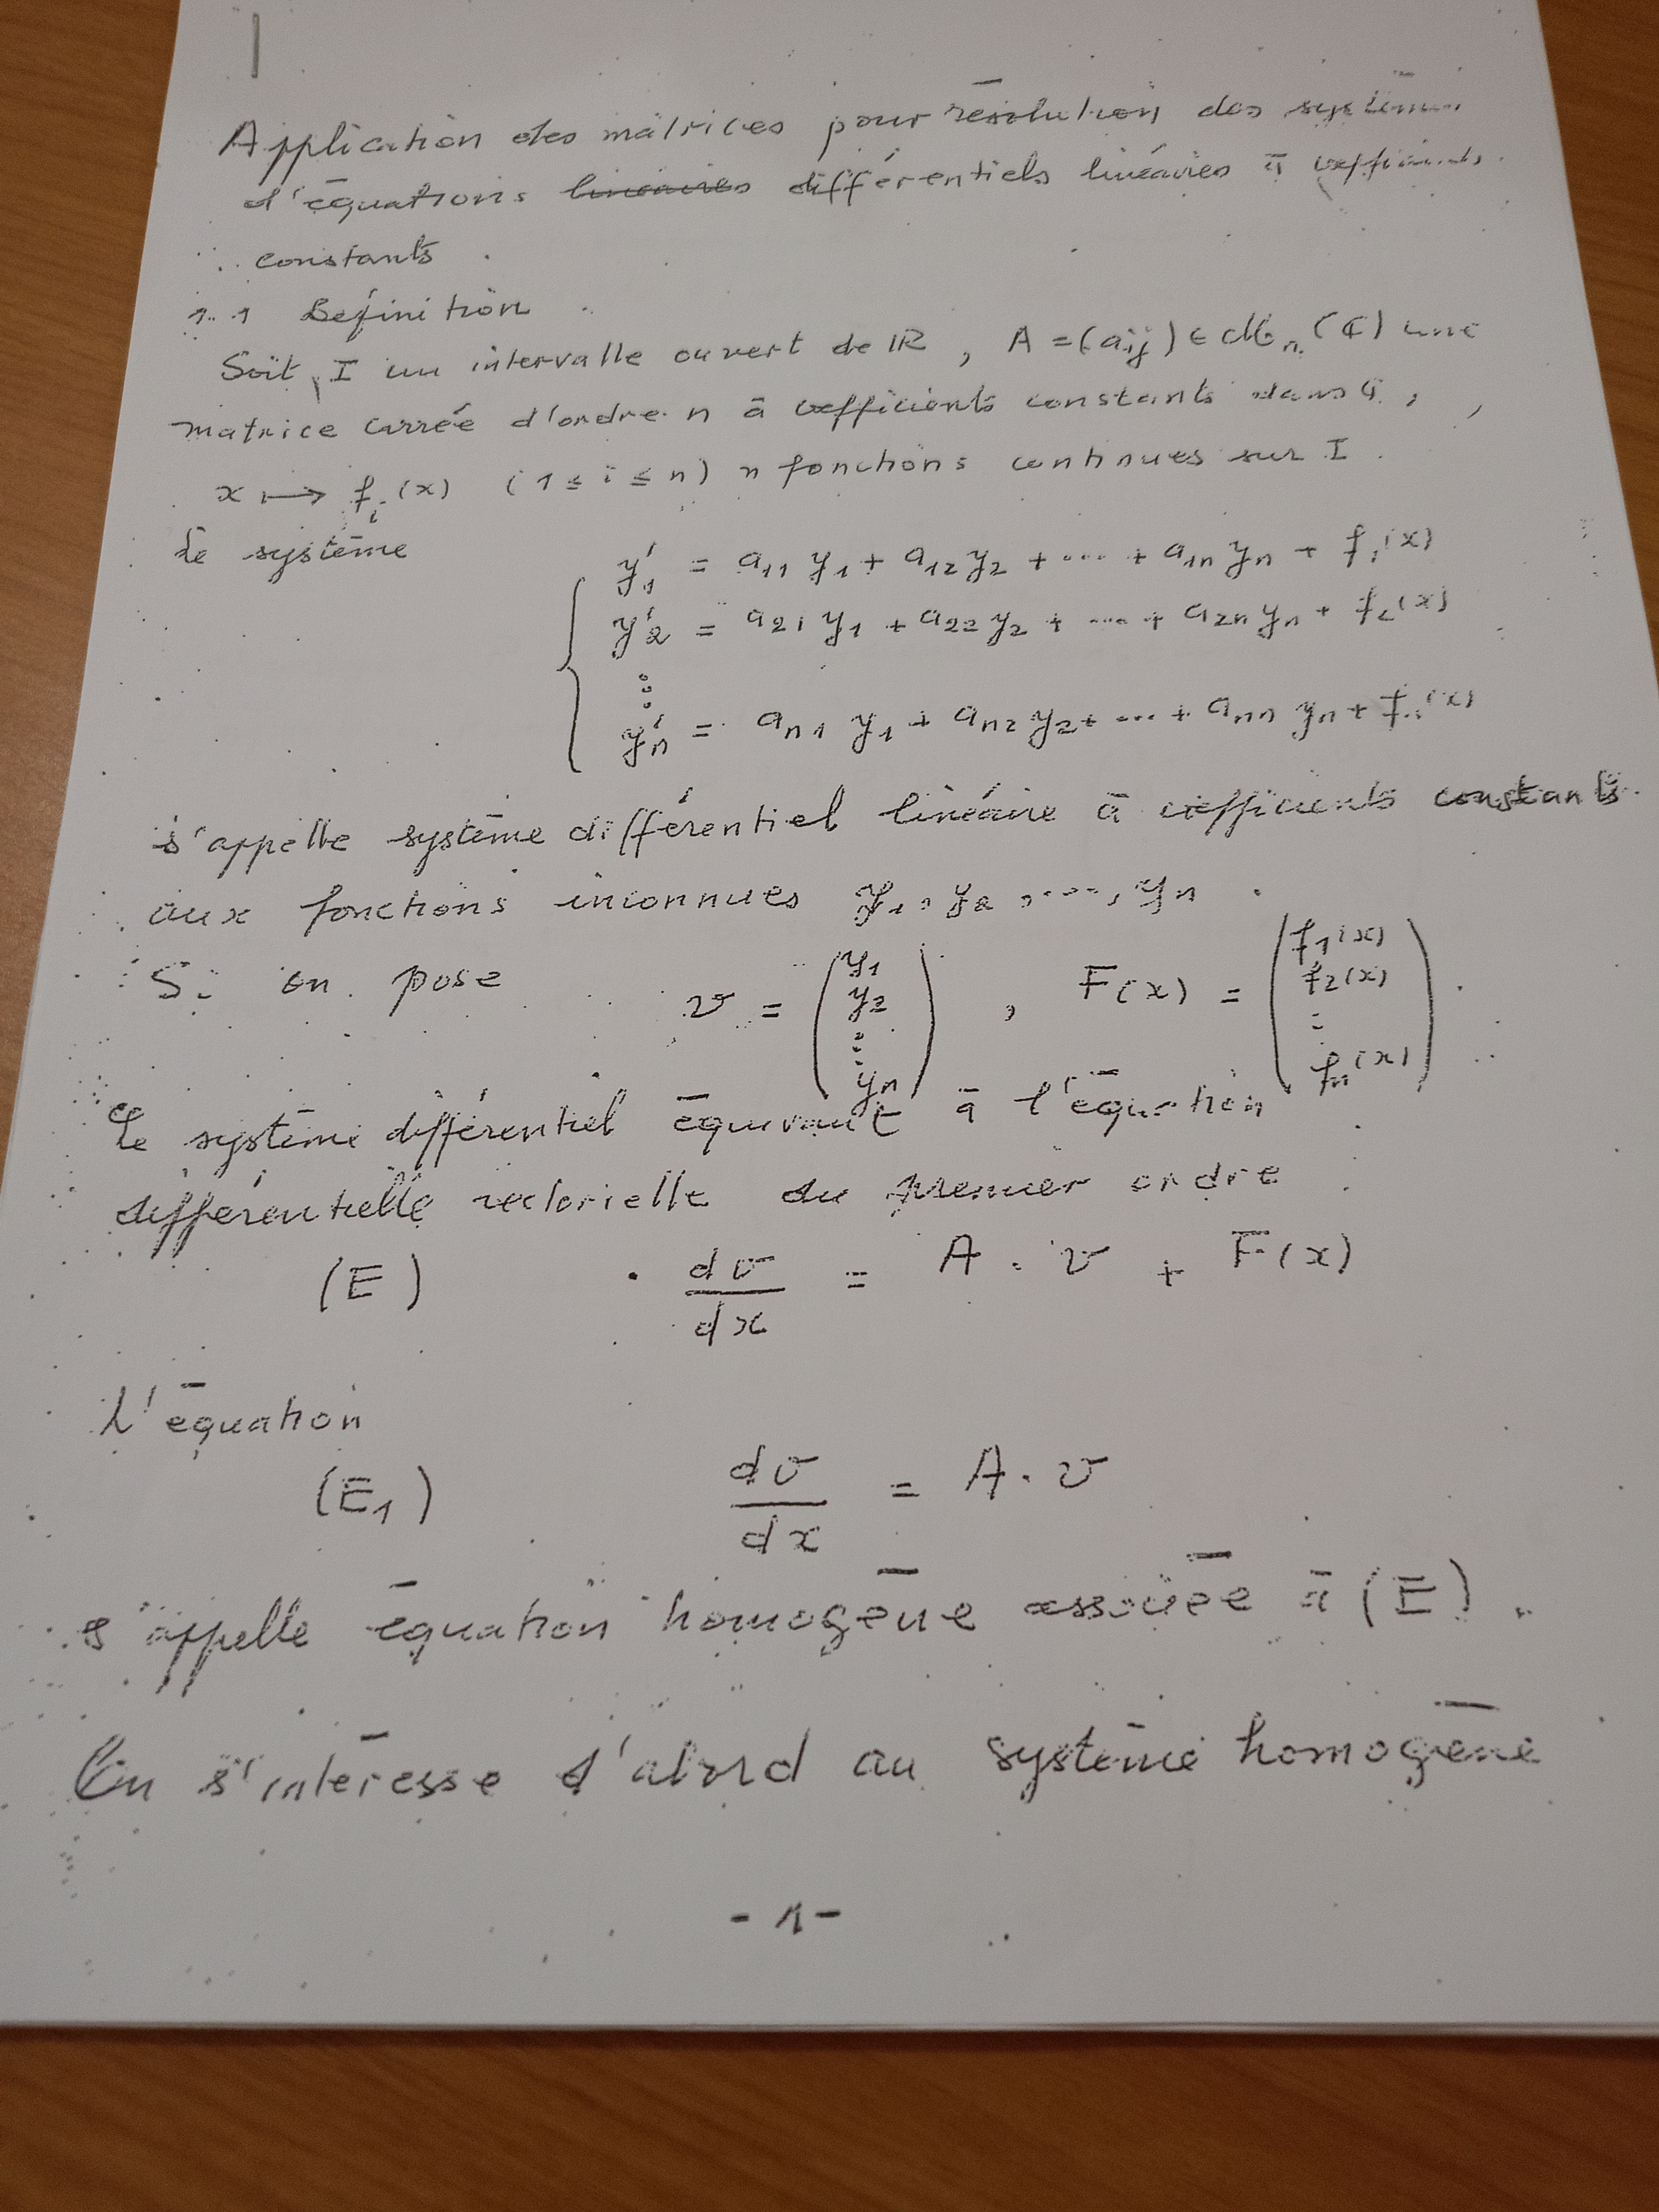 Application des matrices pour résolution des systèmes
d'équations linéaires différentiels linéaires à coefficients
constants
1.1 Définition
Soit I un intervalle ouvert de ℝ, A = (aij) ∈ ℳn(ℂ) une
matrice carrée d'ordre n à coefficients constants dans ℂ,
x ⟼ fi(x) (1 ≤ i ≤ n) n fonctions continues sur I.
Le système
y'1 = a11 y1 + a12 y2 + ... + a1n yn + f1(x)
y'2 = a21 y1 + a22 y2 + ... + a2n yn + f2(x)
⋮
y'n = an1 y1 + an2 y2 + ... + ann yn + fn(x)
s'appelle système différentiel linéaire à coefficients constants
aux fonctions inconnues y1, y2, ..., yn.
Si on pose v = (y1 y2 ⋮ yn), F(x) = (f1(x) f2(x) ⋮ fn(x)).
Le système différentiel équivaut à l'équation
différentielle vectorielle du premier ordre
(E) dv/dx = A . v + F(x)
L'équation
(E1) dv/dx = A . v
s'appelle équation homogène associée à (E).
On s'intéresse d'abord au système homogène
- 1 -